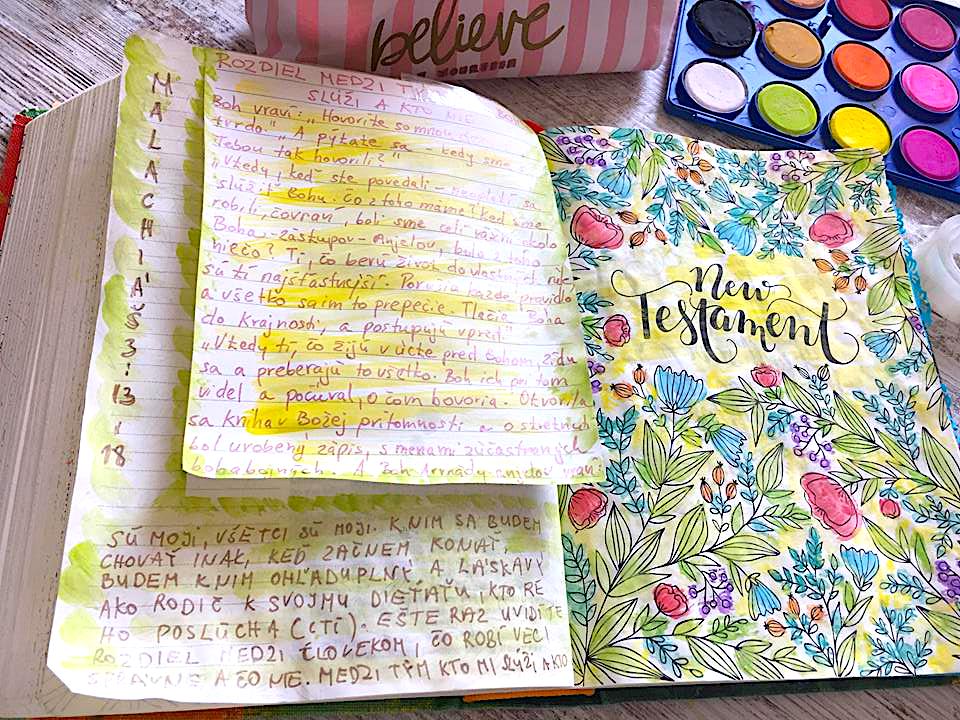 believe
MALACHIÁŠ 3:13-18
ROZDIEL MEDZI
SLÚŽI A KTO NIE
Boh vraví: „Hovoríte so mnou
tvrdo." A pýtate sa - kedy sme
Tebou tak hovorili?"
„Vtedy, keď ste povedali - neoplatí sa
slúžiť Bohu. Čo z toho máme? Keď sme
robili, čo vraví, boli sme celí vážni okolo
Boha - zástupov - Anjelov, bolo z toho
niečo? Tí, čo berú život do vlastných rúk
sú tí najšťastnejší. Porušia každé pravidlo
a všetko sa im to prepečie. Tlačia Boha
do Krajnosti, a postupujú vpred."
„Vtedy tí, čo žijú v úcte pred Bohom, zídu
sa a preberajú to všetko. Boh ich pri tom
videl a počúval, o čom hovoria. Otvorila
sa kniha v Božej prítomnosti a o stretnutí
bol urobený zápis, s menami zúčastnených
bohabojných. A Boh Armády anjelov vraví:
SÚ MOJI, VŠETCI SÚ MOJI. K NIM SA BUDEM
CHOVAŤ INAK, KEĎ ZAČNEM KONAŤ,
BUDEM K NIM OHĽADUPLNÝ A LÁSKAVÝ
AKO RODIČ K SVOJMU DIEŤAŤU, KTORÉ
HO POSLÚCHA (CTÍ). EŠTE RAZ UVIDÍTE
ROZDIEL MEDZI ČLOVEKOM, ČO ROBÍ VECI
SPRÁVNE A ČO NIE. MEDZI TÝM KTO MI SLÚŽI A KTO
New
Testament